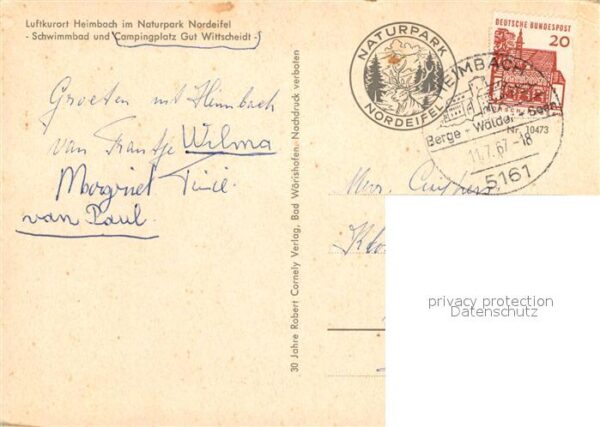 Luftkurort Heimbach im Naturpark Nordeifel
- Schwimmbad und Campingplatz Gut Wittscheidt -
Groeten uit Heimbach
van Frantje Wilma
Margriet Tinie.
van Paul.
30 Jahre Robert Cornely Verlag, Bad Wörishofen, Nachdruck verboten
NATURPARK
NORDEIFEL
HEIMBACH
Berge - Wälder - Seen
11.7.67-18
5161
DEUTSCHE BUNDESPOST
20
Nr. 10473
Mevr.
privacy protection
Datenschutz